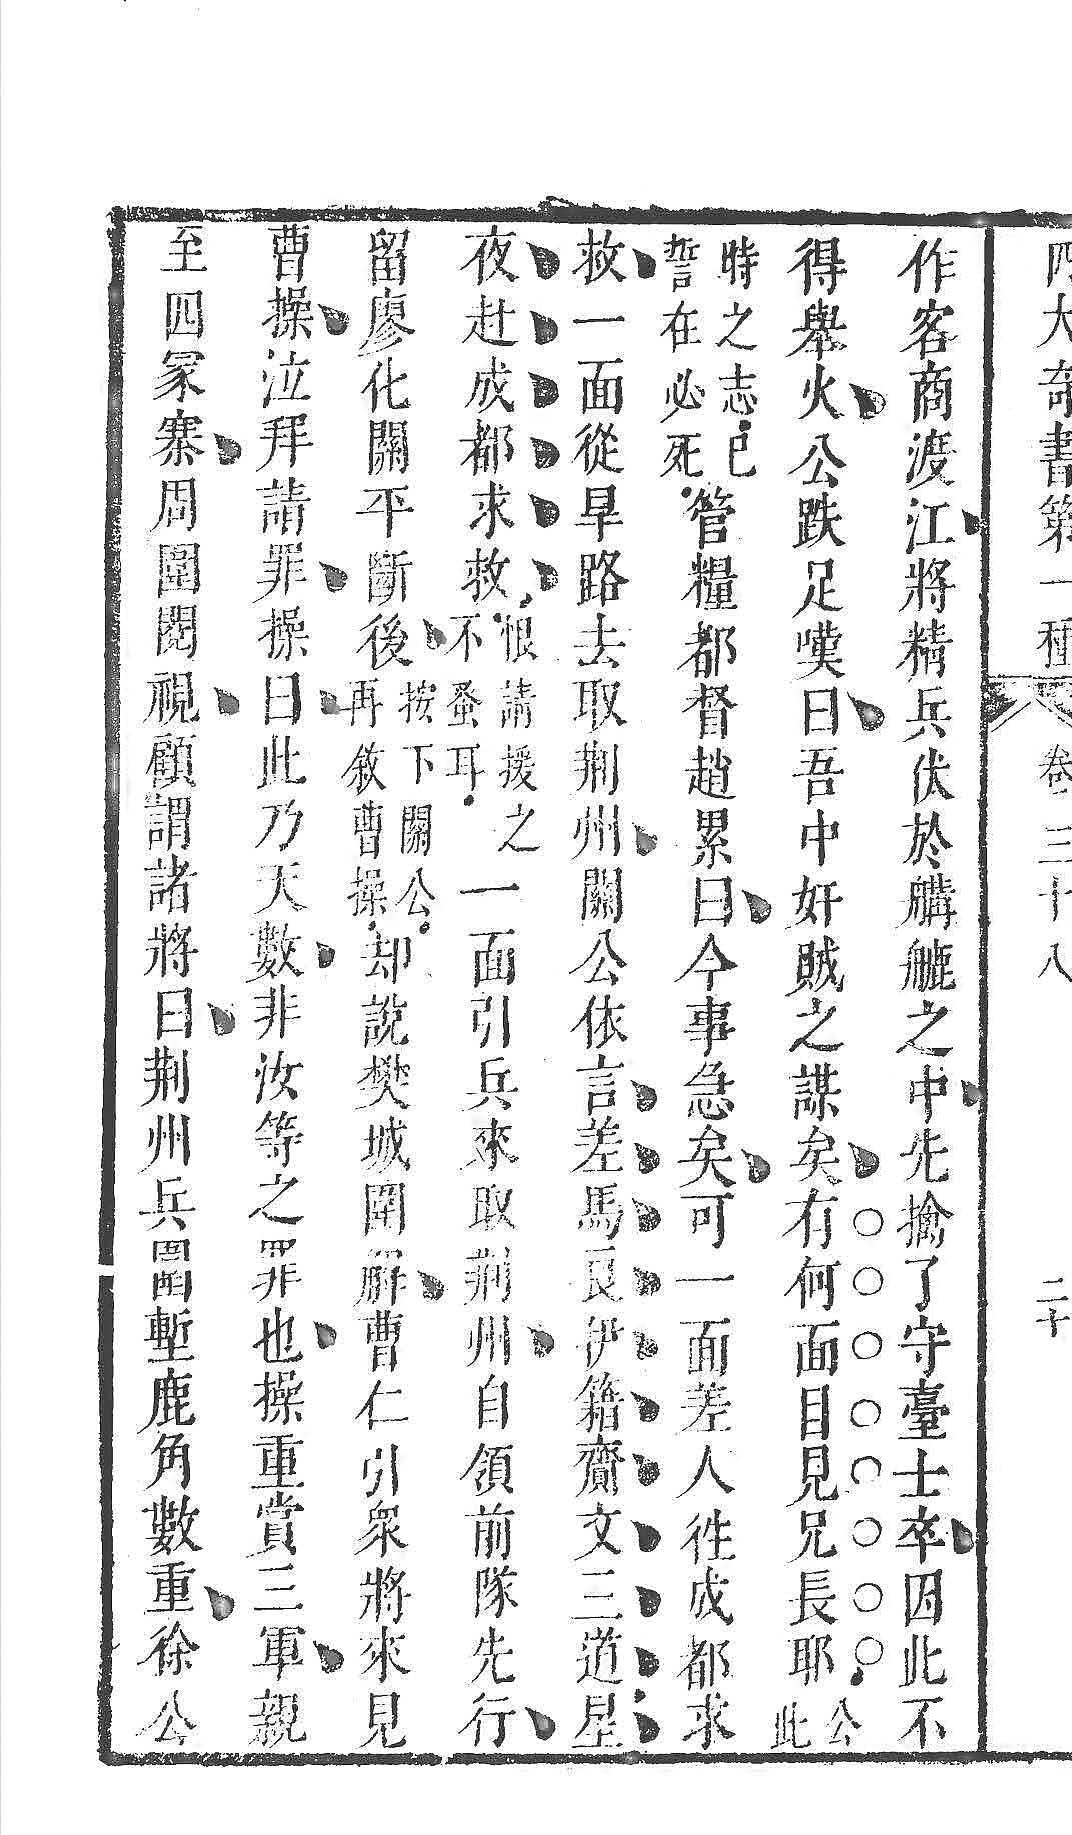 四大奇書第一種 卷三十八 二十
作客商渡江將精兵伏於䑽䑼之中先擒了守臺士卒因此不
得舉火公跌足嘆曰吾中奸賊之謀矣有何面目見兄長耶公此
時之志已誓在必死管糧都督趙累曰今事急矣可一面差人徃成都求
救一面從旱路去取荆州關公依言差馬良伊籍齎文三道星
夜赴成都求救恨請援之不蚤耳一面引兵來取荆州自領前隊先行
留廖化關平斷後按下關公再敘曹操却說樊城圍解曹仁引衆將來見
曹操泣拜請罪操曰此乃天數非汝等之罪也操重賞三軍親
至四冢寨周圍閱視顧謂諸將曰荆州兵圍塹鹿角數重徐公